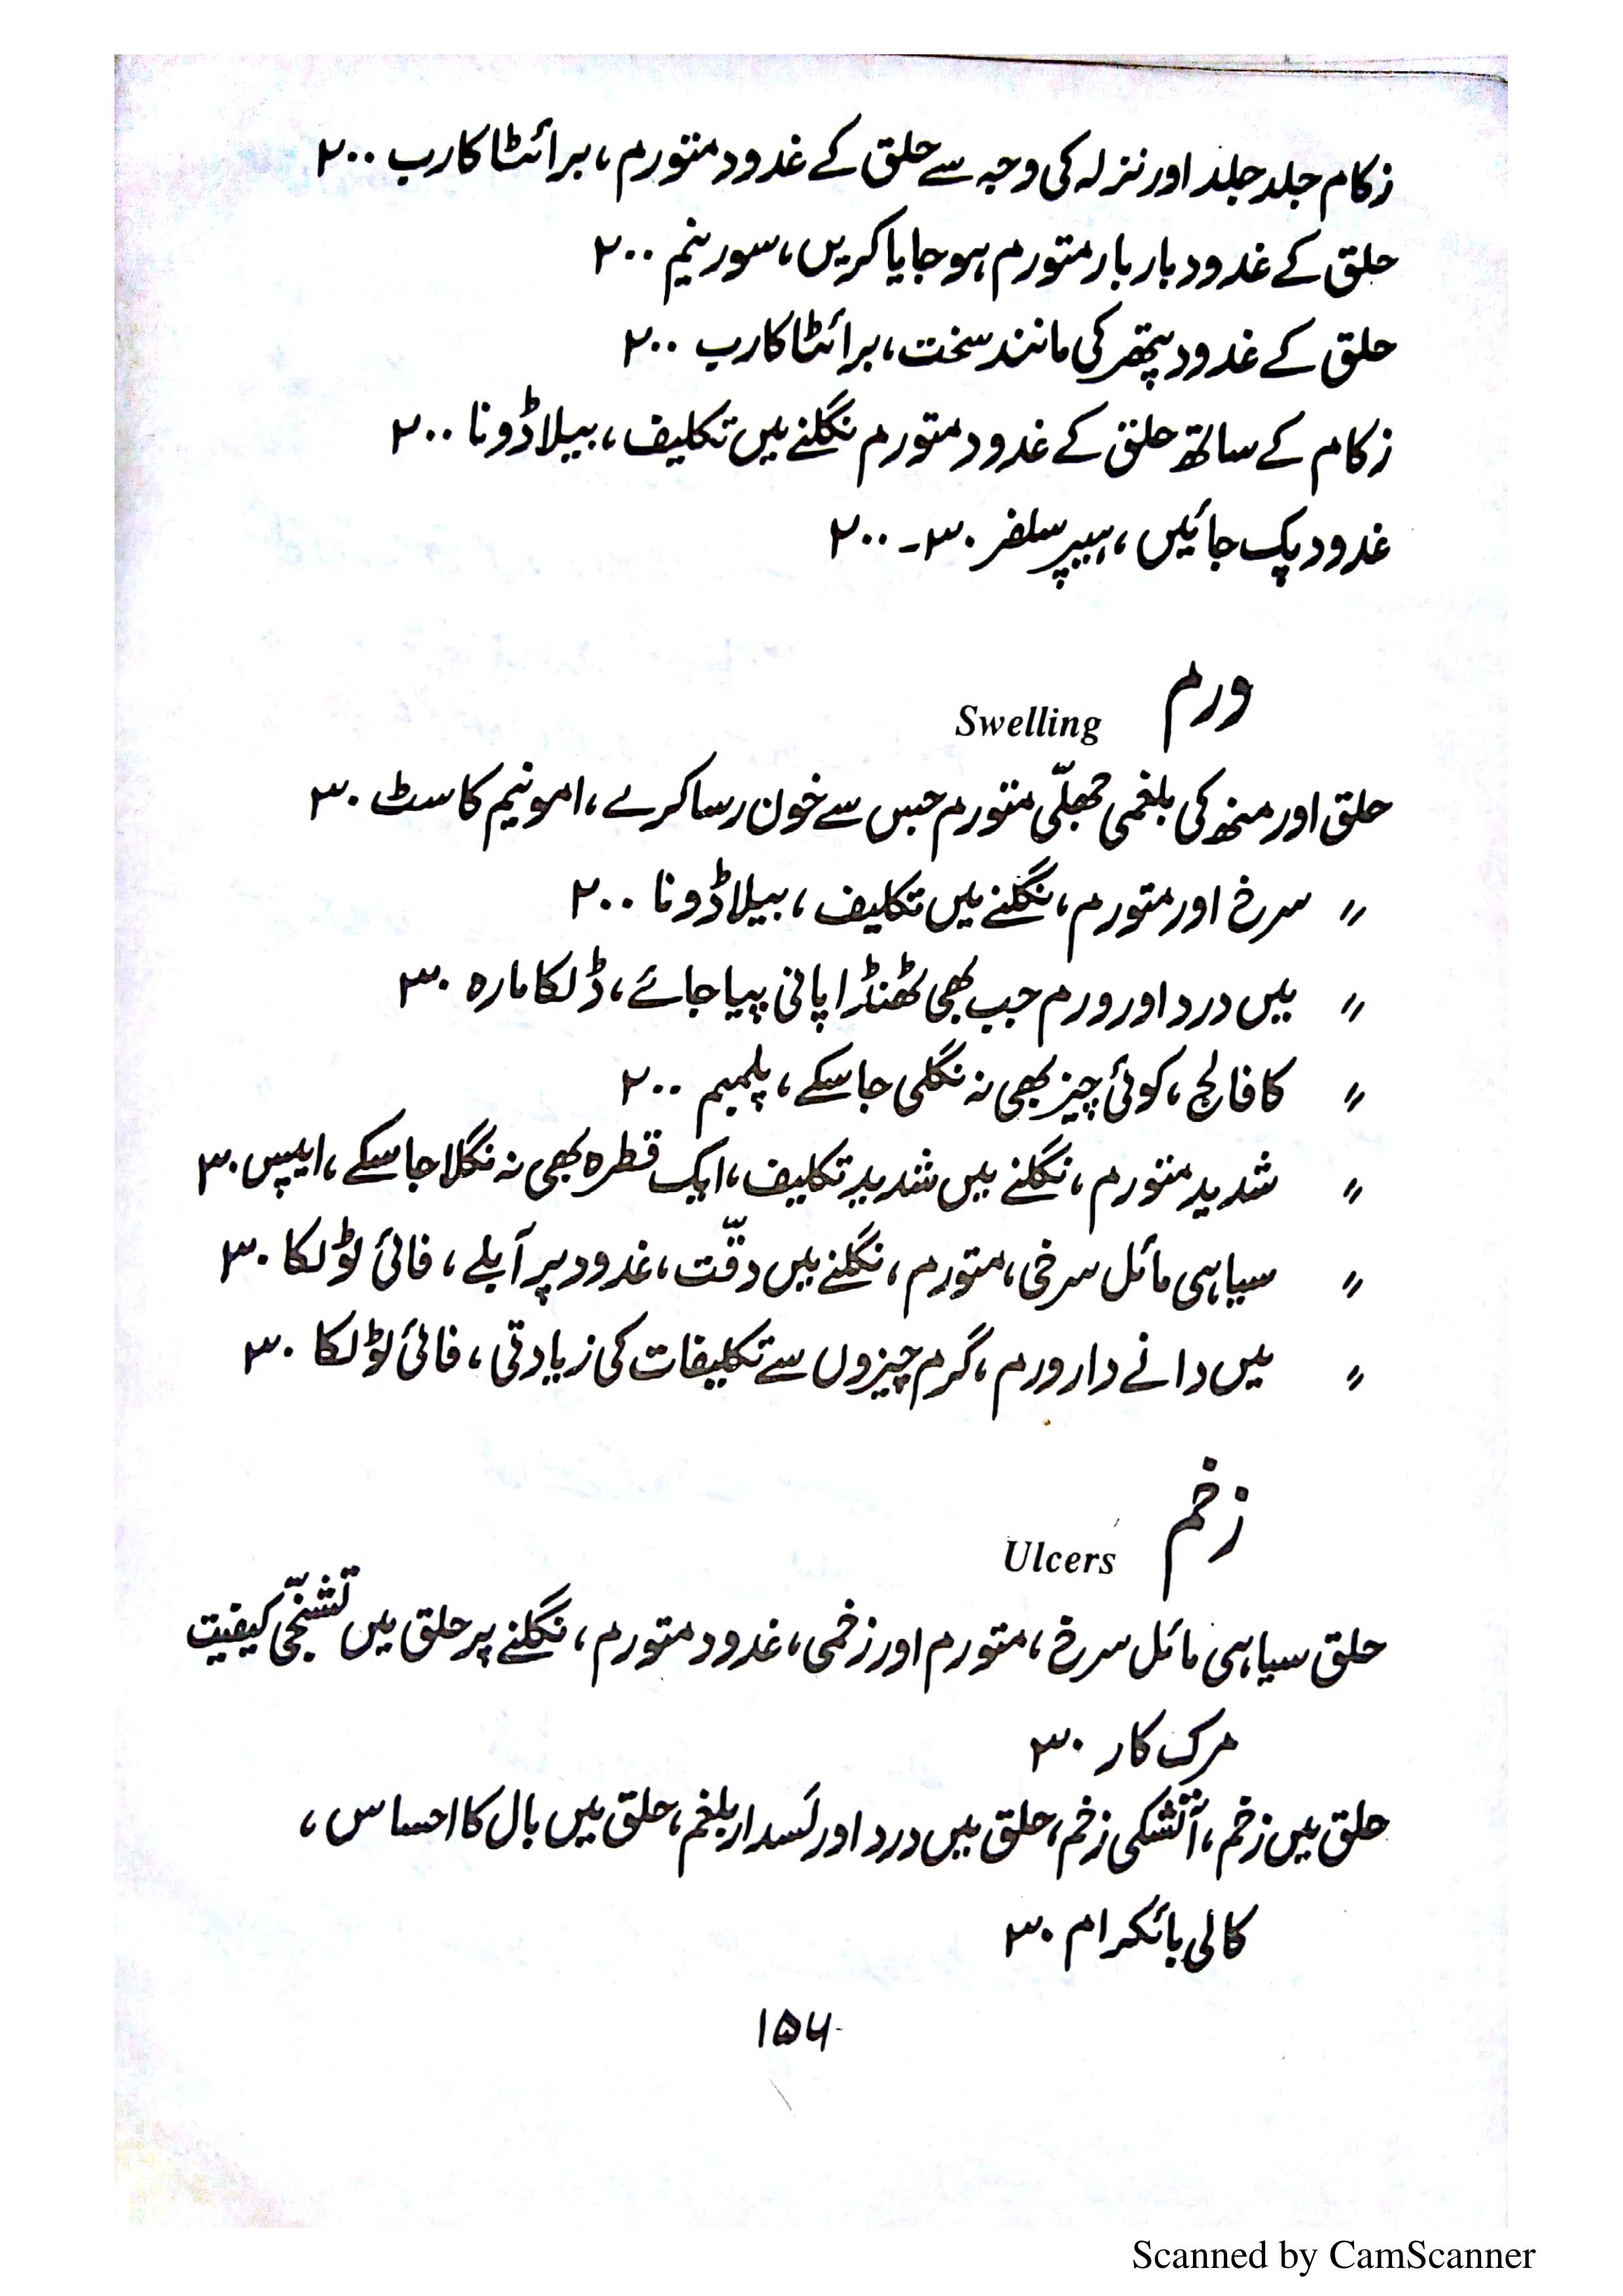 زکام جلد جلد اور نزلہ کی وجہ سے حلق کے غدود متورم، برائٹا کارب ۲۰۰
حلق کے غدود بار بار متورم ہو جایا کریں، سورینم ۲۰۰
حلق کے غدود پتھر کی مانند سخت، برائٹا کارب ۲۰۰
زکام کے ساتھ حلق کے غدود متورم نگلنے میں تکلیف، بیلاڈونا ۲۰۰
غدود پک جائیں، ہیپر سلفر ۳۰۔۲۰۰
ورم
Swelling
حلق اور منہ کی بلغمی جھلّی متورم جس سے خون رسا کرے، امونیم کاسٹ ۳۰
〃 سرخ اور متورم، نگلنے میں تکلیف، بیلاڈونا ۲۰۰
〃 میں درد اور ورم جب بھی ٹھنڈا پانی پیا جائے، ڈلکامارہ ۳۰
〃 کا فالج، کوئی چیز بھی نہ نگلی جا سکے، پلمبم ۲۰۰
〃 شدید متورم، نگلنے میں شدید تکلیف، ایک قطرہ بھی نہ نگلا جا سکے، ایپس ۳۰
〃 سیاہی مائل سرخی، متورم، نگلنے میں دقّت، غدود پر آبلے، فائی ٹولکا ۳۰
〃 میں دانے دار ورم، گرم چیزوں سے تکلیفات کی زیادتی، فائی ٹولکا ۳۰
زخم
Ulcers
حلق سیاہی مائل سرخ، متورم اور زخمی، غدود متورم، نگلنے پر حلق میں تشنّجی کیفیت
مرک کار ۳۰
حلق میں زخم، آتشکی زخم، حلق میں درد اور لسدار بلغم، حلق میں بال کا احساس،
کالی بائکرام ۳۰
۱۵۶
Scanned by CamScanner